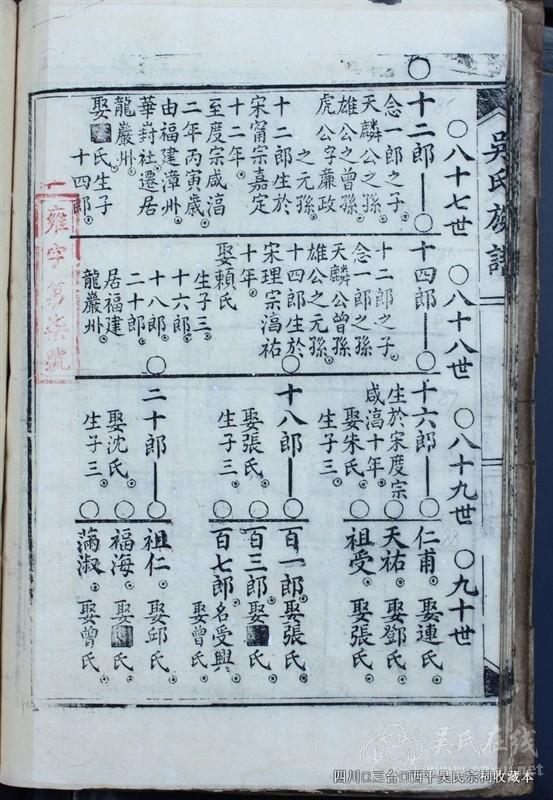 吳氏族譜
○八十七世 ○八十八世 ○八十九世 ○九十世
十二郎
念一郎之子。
天麟公之孫。
雄公之曾孫。
虎公字廉政
之元孫。
十二郎生於
宋甯宗嘉定
十二年。
至度宗咸湻
二年丙寅歲
由福建漳州
華封社遷居
龍巖州。
娶 氏生子
十四郎。
十四郎
十二郎之子。
念一郎之孫
天麟公曾孫
雄公之元孫
十四郎生於
宋理宗湻祐
十年。
娶賴氏
生子三。
十六郎。
十八郎。
二十郎。
居福建
龍巖州。
十六郎
生於宋度宗
咸湻十年。
娶朱氏。
生子三。
十八郎
娶張氏。
生子三。
二十郎
娶沈氏。
生子三。
仁甫。娶連氏。
天祐。娶鄧氏。
祖受。娶張氏。
百一郎。娶張氏。
百三郎。娶 氏。
百七郎名受興
娶曾氏。
祖仁。娶邱氏。
福海。娶 氏。
滿淑。娶曾氏。
雍字第柒號
吴氏在线
四川□三台□西平吴氏宗祠收藏本